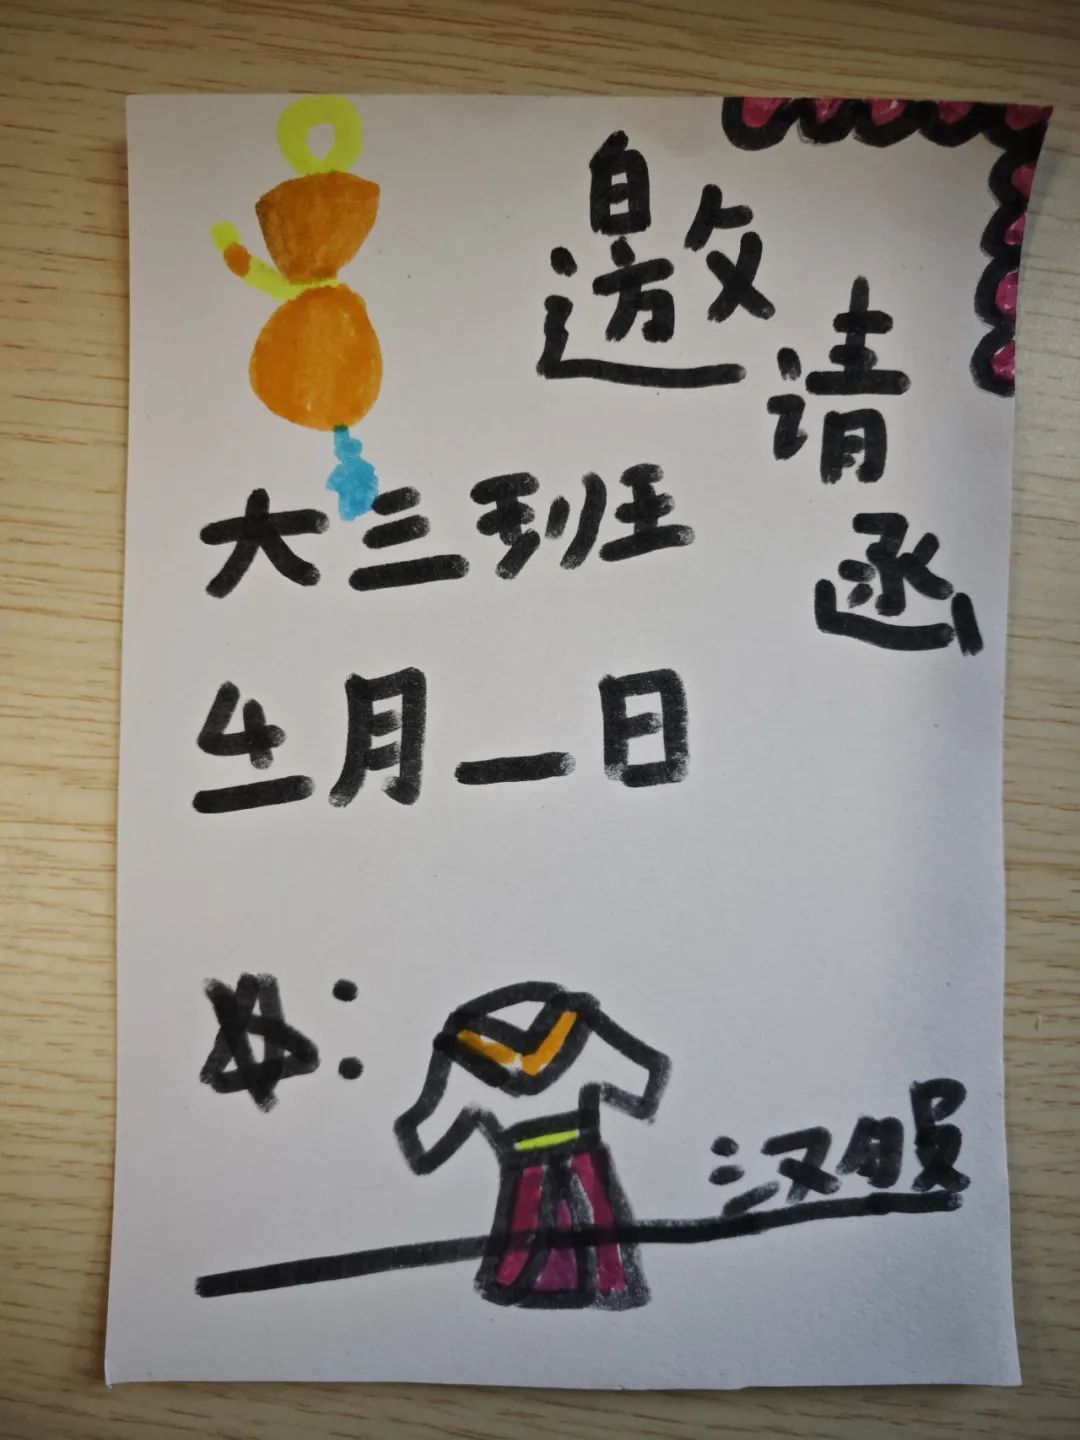 邀请函
大三班
4月一日
汉服